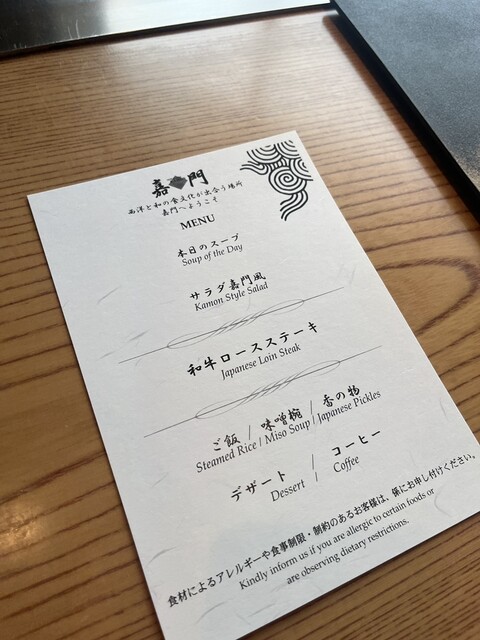 嘉門
西洋と和の食文化が出合う場所
嘉門へようこそ
MENU
本日のスープ
Soup of the Day
サラダ嘉門風
Kamon Style Salad
和牛ロースステーキ
Japanese Loin Steak
ご飯 / 味噌椀 / 香の物
Steamed Rice / Miso Soup / Japanese Pickles
デザート / コーヒー
Dessert / Coffee
食材によるアレルギーや食事制限・制約のあるお客様は、係にお申し付けください。
Kindly inform us if you are allergic to certain foods or
are observing dietary restrictions.